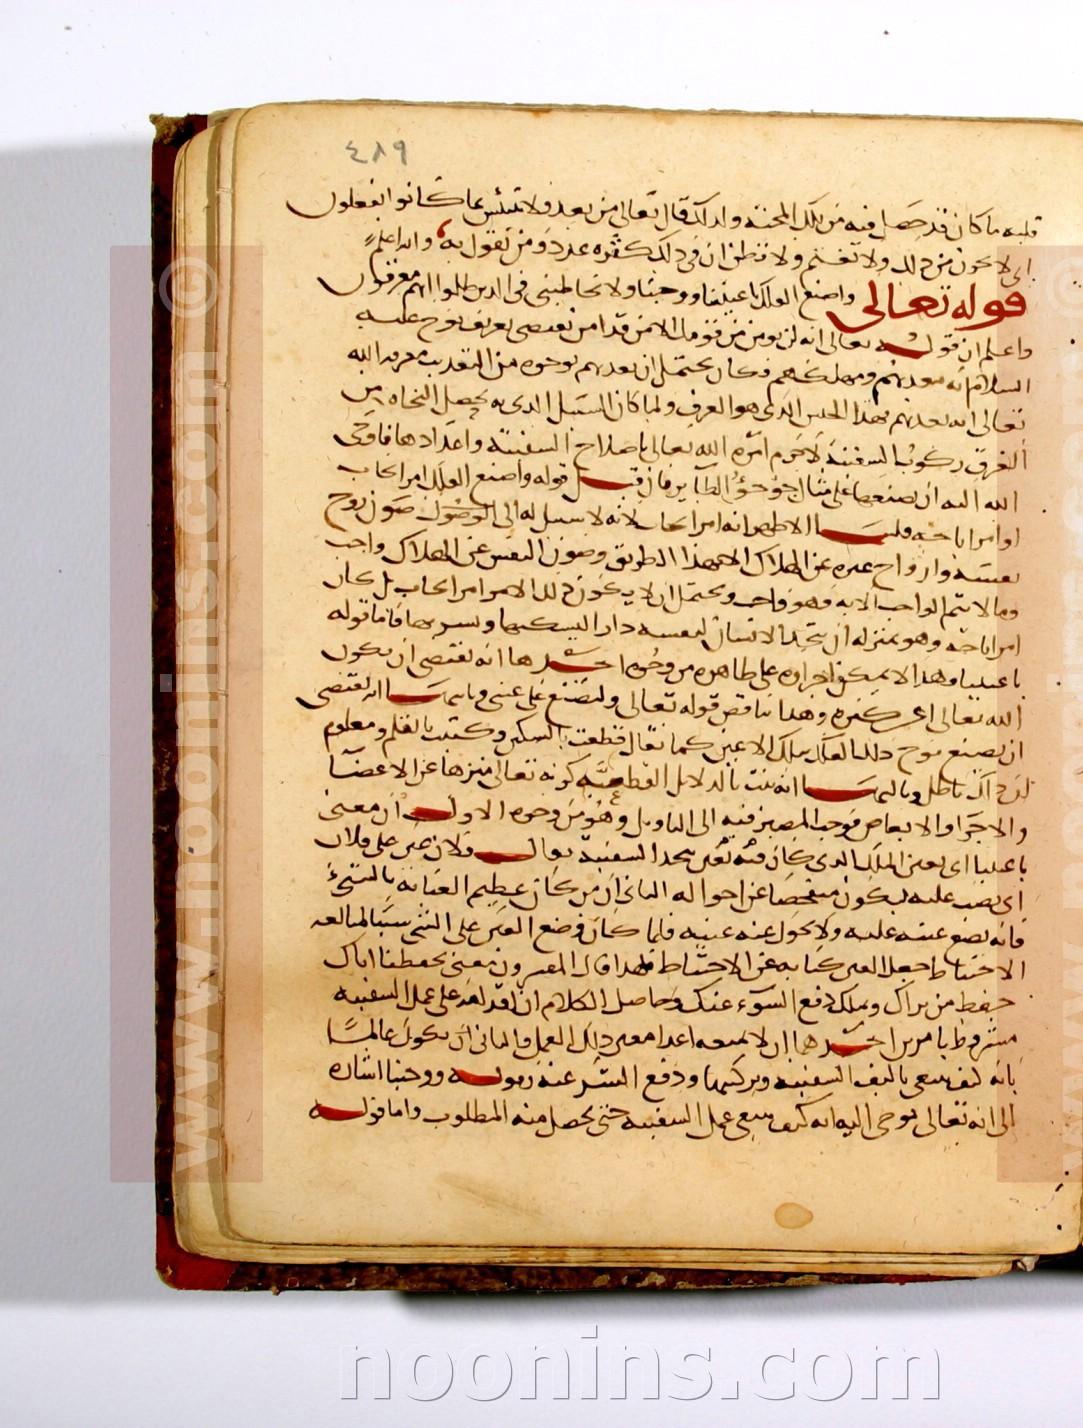 ٤٨٩
قلبه ما كان قد حصل فيه من تلك المحنة ولذلك قال تعالى من بعد فلا تبتئس بما كانوا يفعلون
اى لا تحزن من ذلك ولا تغتم ولا تظن ان في ذلك كثره عدد من تقول به والله اعلم
قوله تعالى واصنع الفلك باعيننا ووحينا ولا تخاطبنى فى الذين ظلموا انهم مغرقون
واعلم ان قوله تعالى انه لن يومن من قومك الا من قد امن تقتضى تعريف نوح عليه
السلام انه معذبهم ومهلكهم فكان يحتمل ان يعذبهم بوجوه من التعذيب فعرفه الله
تعالى انه يعذبهم بهذا الجنس الذى هو الغرق ولما كان السبيل الذى به يحصل النجاه من
الغرق ركوب السفينة لا جرم امره الله تعالى باصلاح السفينة واعدادها فاوحى
الله اليه ان يصنعها على مثال جؤجؤ الطاير فان قيل قوله واصنع الفلك امر ايجاب
او امر اباحة قلنا الاظهر انه امر ايجاب لانه لا سبيل له الى الوصول صون روح
نفسه وارواح غيره عن الهلاك الا بهذا الطريق وصون النفس عن الهلاك واجب
وما لا يتم الواجب الا به فهو واجب ويحتمل ان لا يكون ذلك الامر امر ايجاب بل كان
امر اباحة وهو بمنزله ان يتخذ الانسان لنفسه دارا ليسكنها و بها فاما قوله
باعيننا وهذا لا يمكن اجراوه على ظاهره من وجوه احدها انه تقتضى ان يكون
الله تعالى اعين كثيره وهذا يناقض قوله تعالى ولتصنع على عينى وثانيها انه يقتضى
ان يصنع نوح ذلك الفلك بتلك الاعين كما تقال قطعت بالسكين وكتبت بالقلم ومعلوم
ان ذلك باطل وثالثها انه ثبت بالدلايل القطعية كونه تعالى منزها عن الاعضا
والاجزا والابعاض فوجب المصير فيه الى التاويل وهو من وجوه الاول ان معنى
باعيننا اى بعين الملك الذى كان معه يتخذ السفينة يقال فلان عين على فلان
اى نصب عليه ليكون متفحصا عن احواله الثانى ان من كان عظيم العنايه بالشئ
فانه يضع عينه عليه ولا يحول عنه عينيه فلما كان وضع العين على الشئ سببا لمبالغه
الاحتياط جعل العين كنايه عن الاحتياط فلهذا قال المفسرون معنى بحفظنا اياك
حفظ من يراك ويملك دفع السوء عنك وحاصل الكلام ان اقدامه على عمل السفينه
مشروط بامرين احدهما ان لا يمنعه اعداه عن ذلك العمل والثانى ان يكون عالما
بانه كيف ينبغى تاليف السفينه وتركيبها ودفع الشر عنه وقوله ووحينا اشاره
الى انه تعالى يوحى اليه انه كيف ينبغى عمل السفينه حتى يحصل منه المطلوب واما قوله
www.noonins.com
www.noonins.com
noonins.com